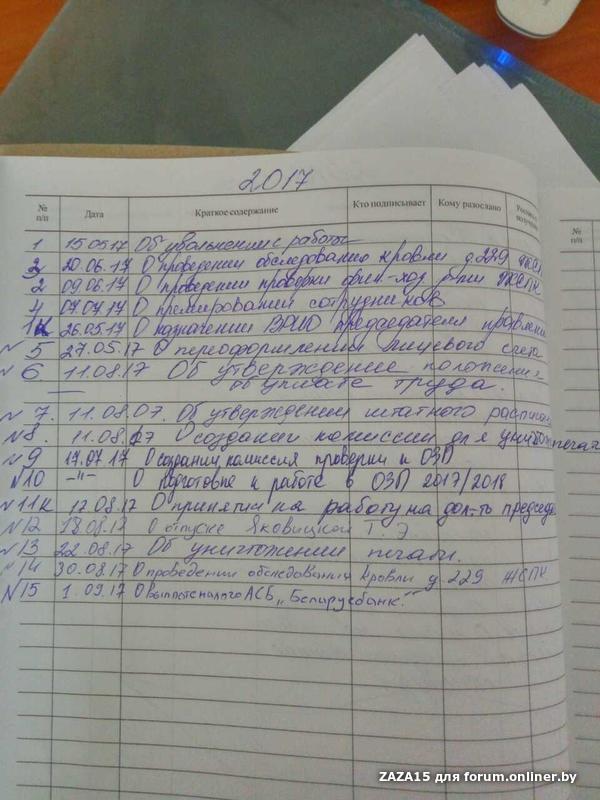 2017
№ п/п Дата Краткое содержание Кто подписывает Кому разослано №
п/п
1 15.05.17 Об увольнении с работы
3 20.06.17 О проведении обследования кровли д.229 ЖСПК
2 09.06.17 О проведении проверки фин-хоз ЖСПК
4 07.07.17 О премировании сотрудников
1к 26.05.17 О назначении ВРИО председателя правления
№5 27.05.17 О переоформлении лицевого счета
№6 11.08.17 Об утверждение положения
об уплате труда.
№7. 11.08.07. Об утверждении штатного
№8. 11.08.07 О создании комиссии для
№9 17.07.17 О создании комиссия проверки к ОЗП
№10 -"- О подготовке к работе в ОЗП 2017/2018
№11к 12.08.17 О принятии на работу на дол-ть председ
№12 18.08.17 О отпуске Яковицкой Т. Э.
№13 22.08.17 Об уничтожении печати.
№14 30.08.17 О проведении обследования кровли д. 229 ЖСПК
№15 1.09.17 О АСБ „Беларусбанк".
ZAZA15 для forum.onliner.by